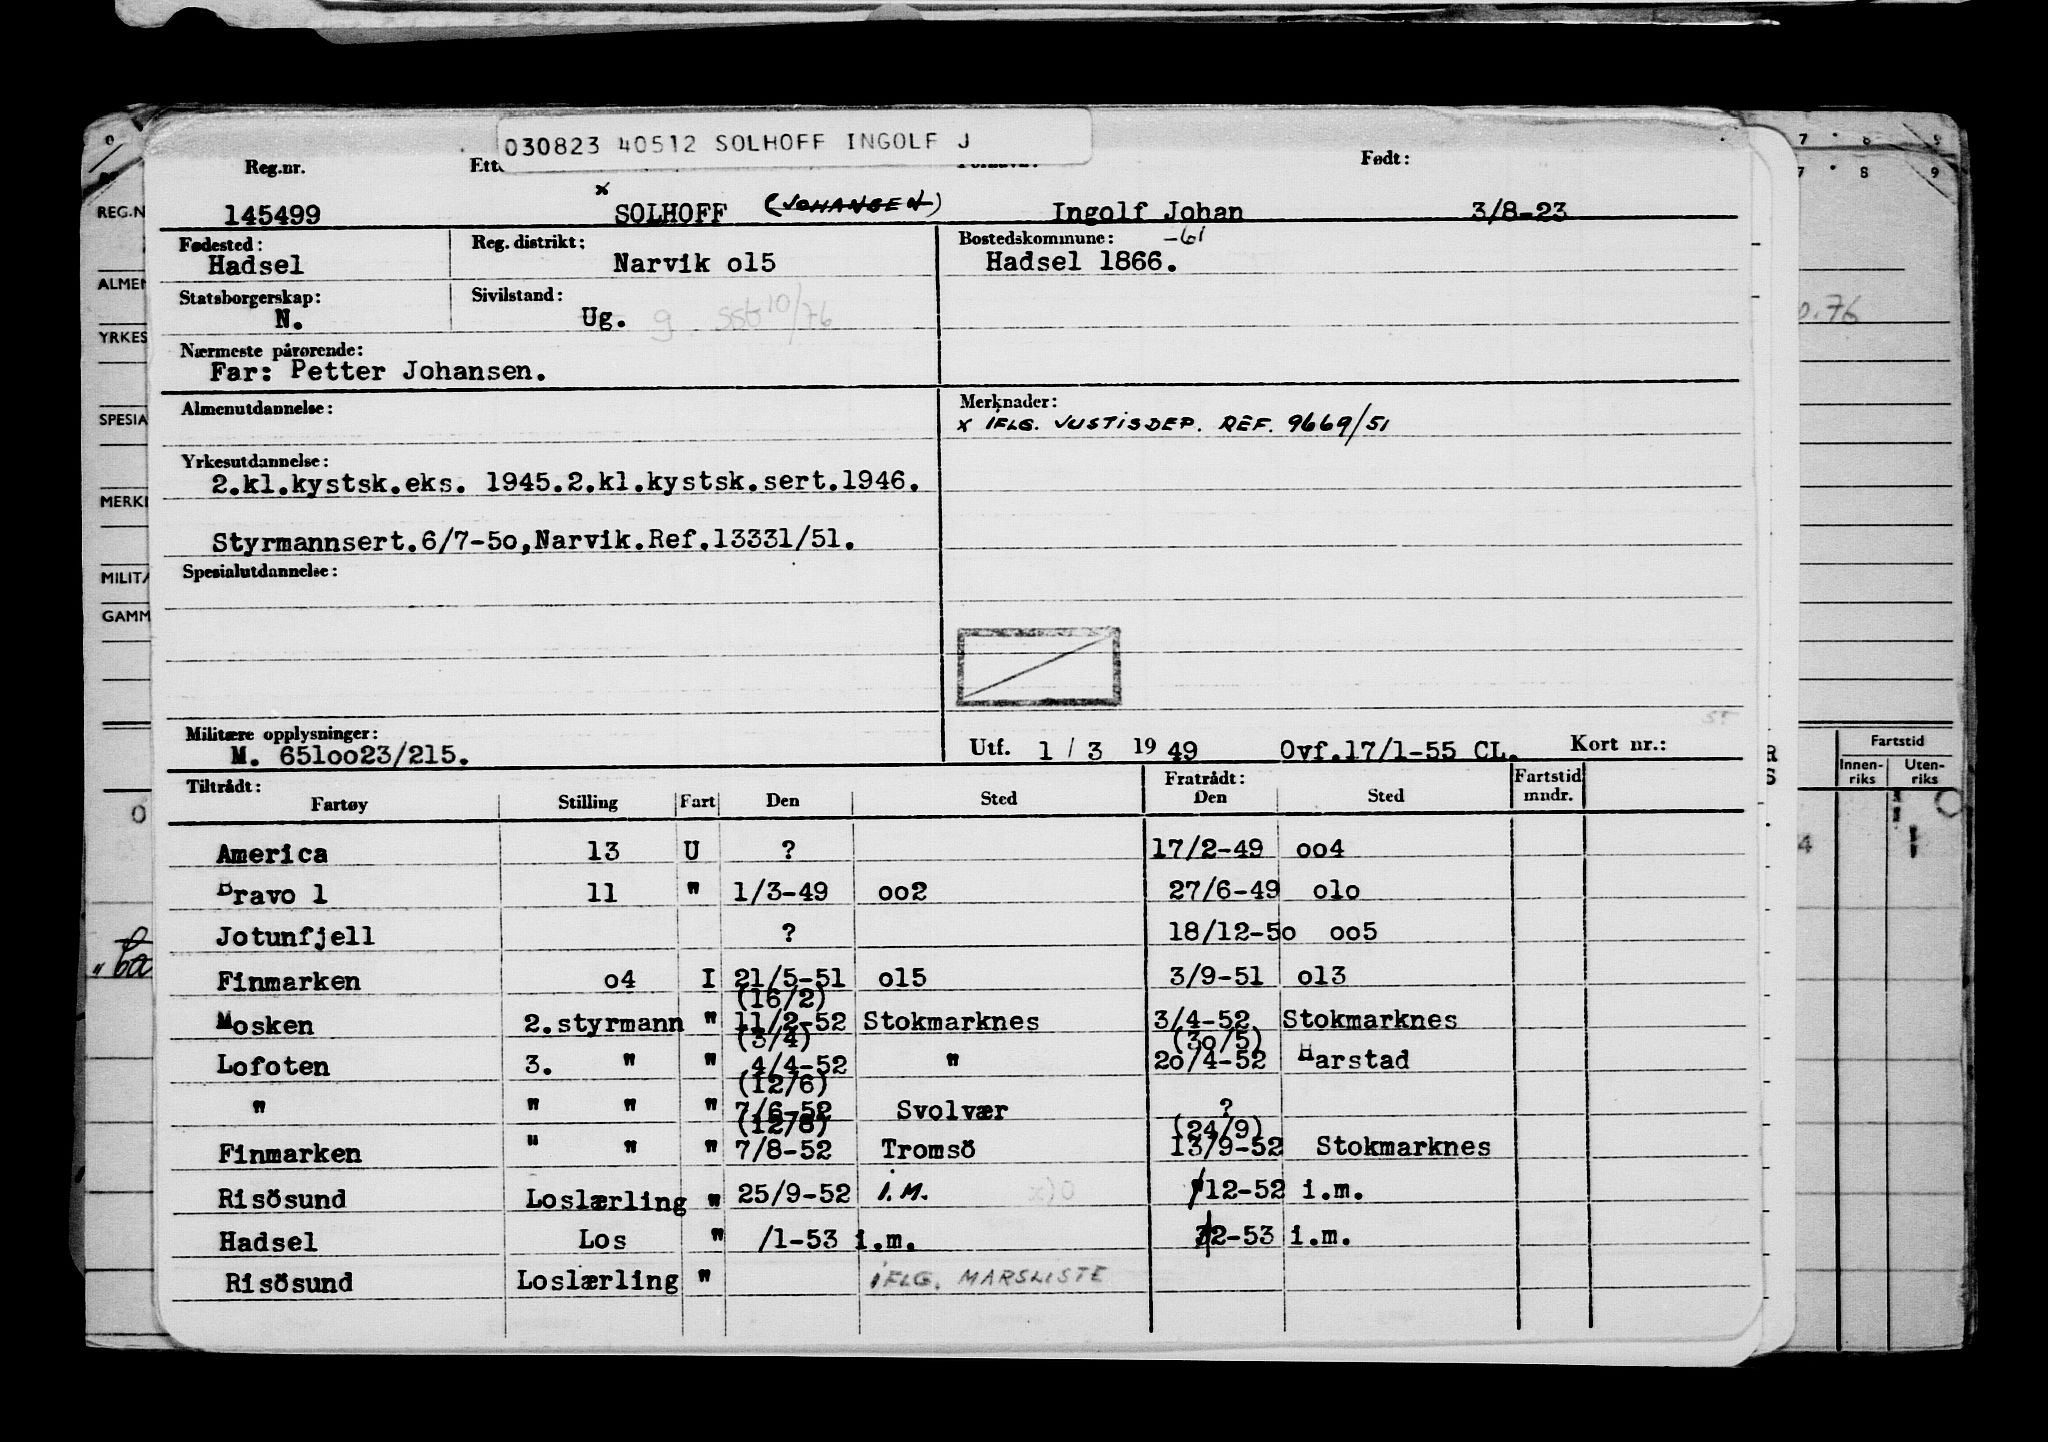 030823 40512 SOLHOFF INGOLF J
Reg.nr. Født:
145499 x SOLHOFF (JOHANSEN) Ingolf Johan 3/8-23
Fødested: Reg. distrikt: Bostedskommune: -61
Hadsel Narvik o15 Hadsel 1866.
Statsborgerskap: Sivilstand:
N. Ug. g sst 10/76
Nærmeste pårørende:
Far: Petter Johansen.
Almenutdannelse: Merknader:
x IFLG. JUSTISDEP. REF. 9669/51
Yrkesutdannelse:
2.kl.kystsk.eks. 1945.2.kl.kystsk.sert.1946.
Styrmannsert.6/7-5o,Narvik.Ref.13331/51.
Spesialutdannelse:
Militære opplysninger:
M. 651oo23/215. Utf. 1 / 3 19 49 Ovf.17/1-55 CL. Kort nr.:
Tiltrådt: Fratrådt: Fartstid
Fartøy Stilling Fart Den Sted Den Sted mndr.
America 13 U ? 17/2-49 oo4
Bravo 1 11 " 1/3-49 oo2 27/6-49 olo
Jotunfjell ? 18/12-5o oo5
Finmarken o4 I 21/5-51 o15 3/9-51 o13
(16/2)
Mosken 2.styrmann " 11/2-52 Stokmarknes 3/4-52 Stokmarknes
(3/4) (3o/5)
Lofoten 3. " " 4/4-52 " 2o/4-52 Harstad
(12/6)
" " " " 7/6-52 Svolvær ?
(12/8) (24/9)
Finmarken " " " 7/8-52 Tromsö 13/9-52 Stokmarknes
Risösund Loslærling " 25/9-52 I.M. /12-52 i.m.
Hadsel Los " /1-53 i.m. 2-53 i.m.
Risösund Loslærling " IFLG. MARSLISTE
REG.N
ALMEN
YRKES
SPESIA
MERKN
MILITÆ
GAMM
7 8 9
7 8 9
Fartstid
Innen-riks Uten-riks